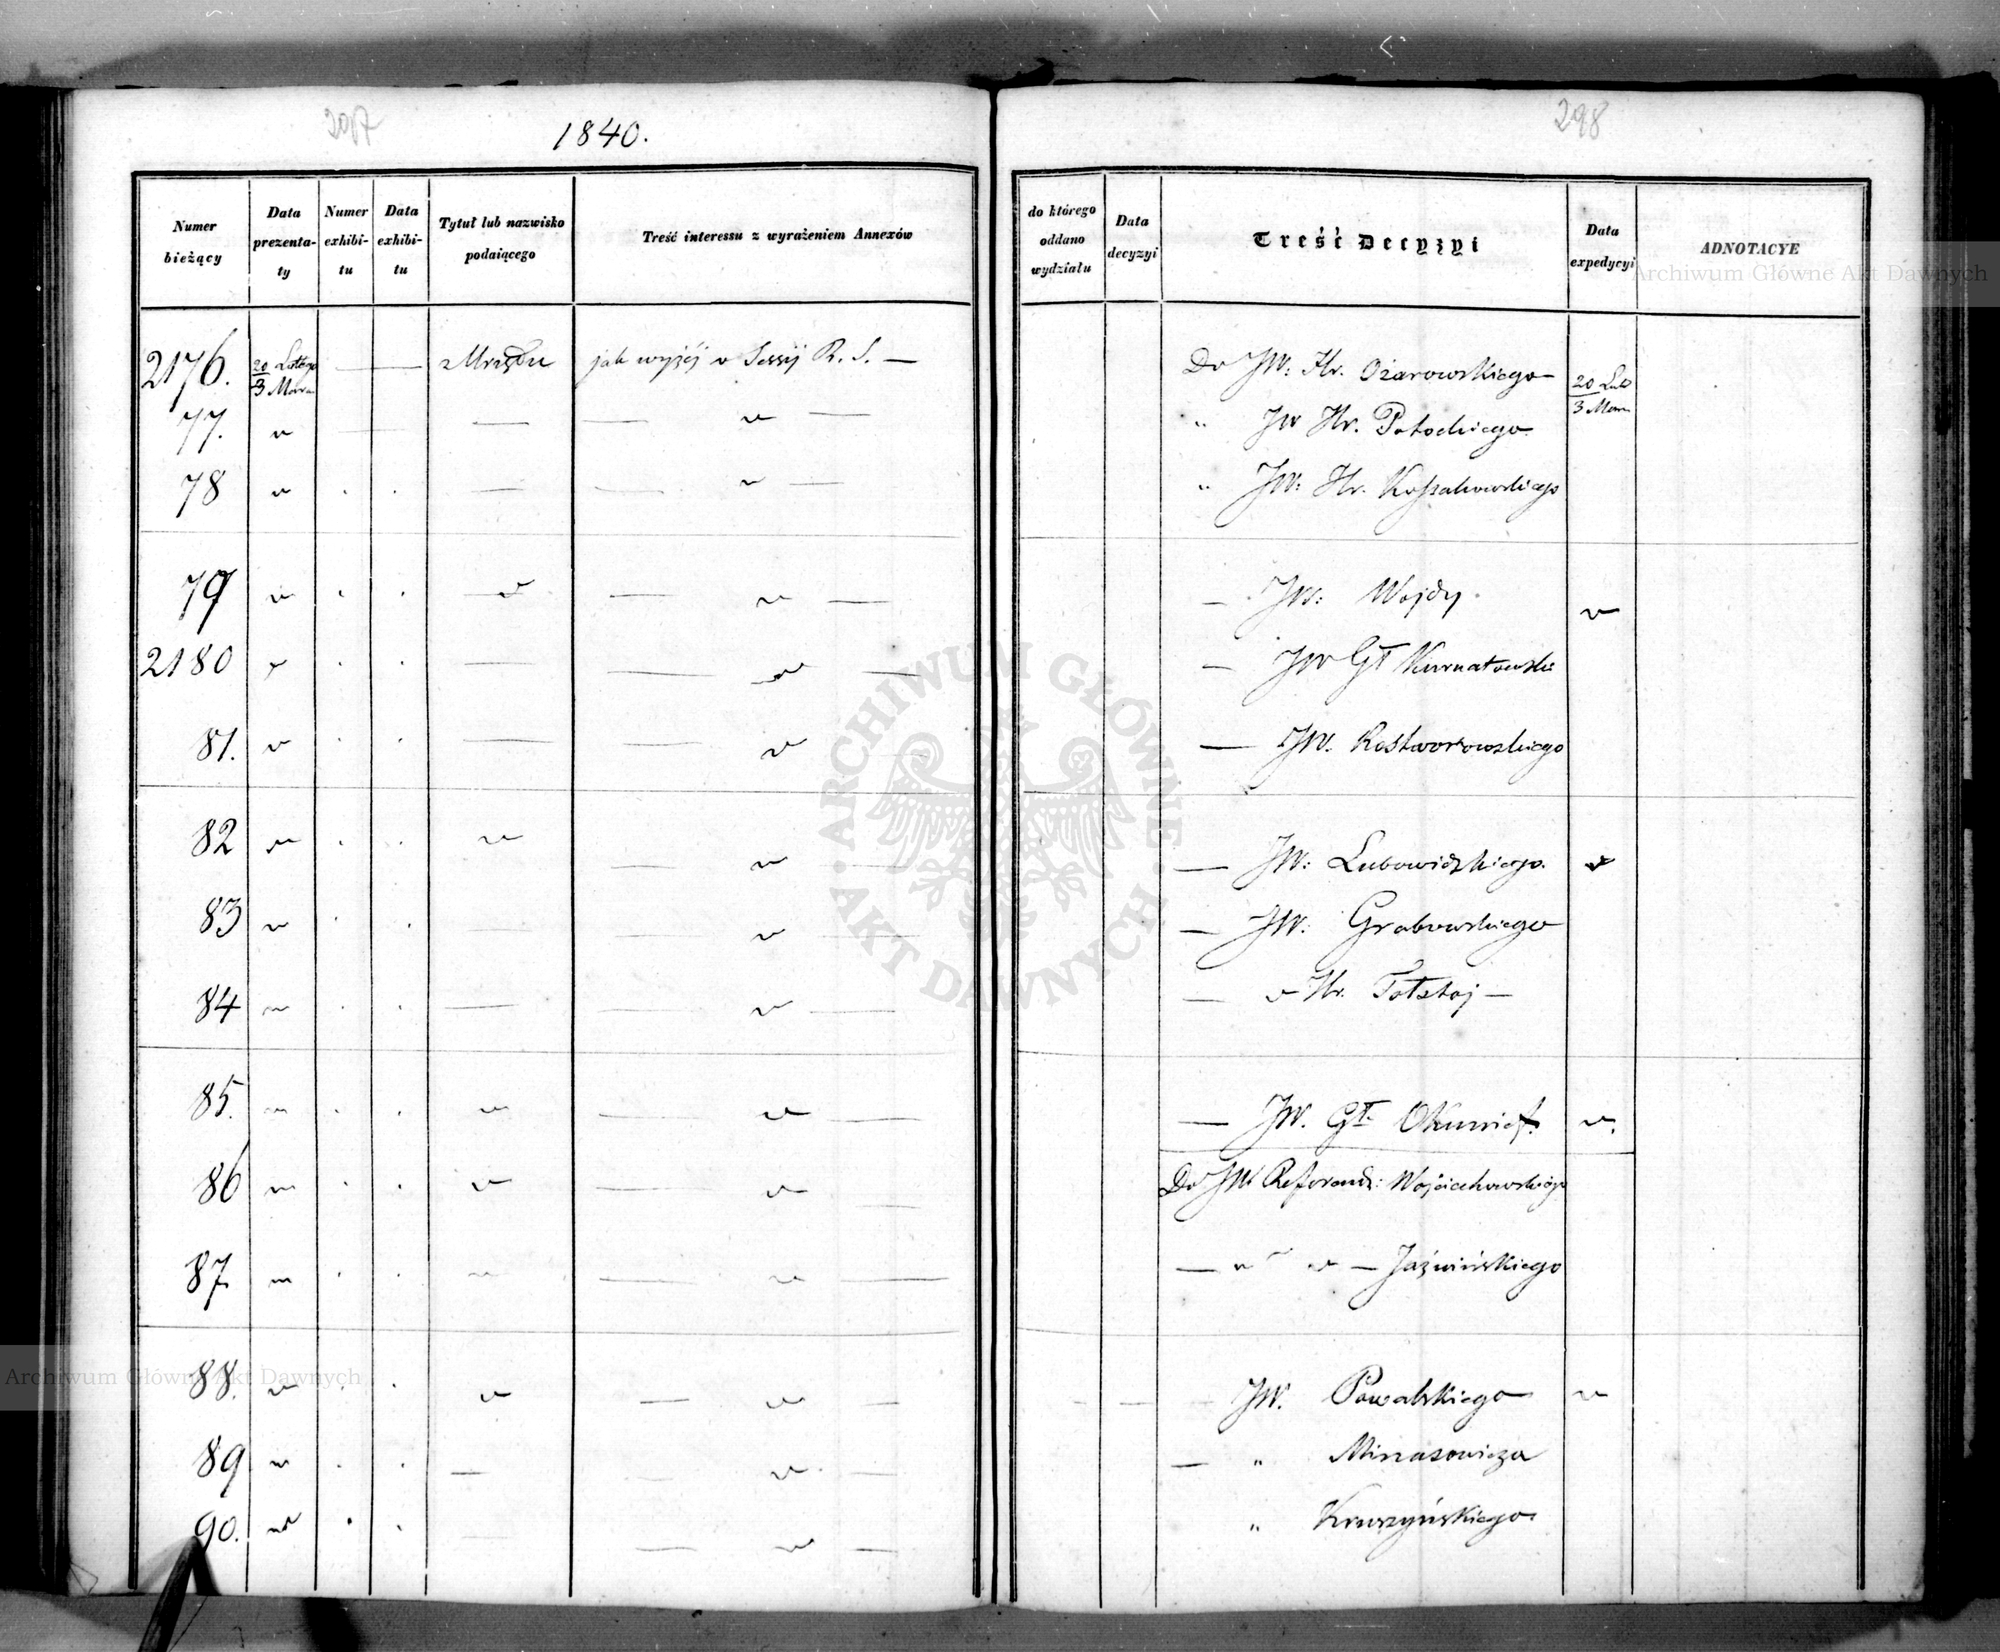 297
1840.
298
Numer bieżący
Data prezenta-ty
Numer exhibi-tu
Data exhibi-tu
Tytuł lub nazwisko podaiącego
Treść interessu z wyrażeniem Annexów
do którego oddano wydziału
Data decyzyi
Treść Decyzyi
Data expedycyi
ADNOTACYE
Archiwum Główne Akt Dawnych
2176. 20 Lutego / 3 Marca — z Urzędu jak wyżéj w Sessyi R. S. — Do JW: Hr. Ożarowskiego 20 Lut / 3 Mar
77. " — — " — " JW Hr. Potockiego
78 " . . — — " — " JW: Hr. Kossakowskiego
79 " . . " — " — — JW: Wojdy. "
2180 " . . — — " — — JW Gł Kurnatowski
81. " . . — — " — — JW. Rostworowskiego
82 " . . " — " — — JW: Lubowidzkiego. "
83 " . . — — " — — JW: Grabowskiego
84 " . . — — " — — " Hr. Tołstoj —
85. " . . " — " — — JW. Gł. Okunief. "
86 " . . " " Do JW Referend: Wojciechowskiego
87 " . . " — " — — " " — Jaźwińskiego
88. " . . " — " — — JW. Powalskiego "
89 " . . — — " — — " Minasowicza
90. " . . — " — " Kruszyńskiego.
ARCHIWUM GŁÓWNE AKT DAWNYCH
Archiwum Główne Akt Dawnych